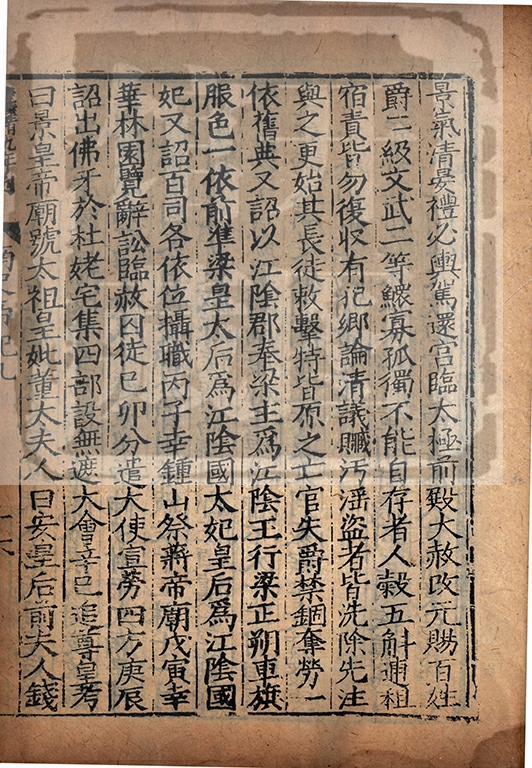 景氣清晏禮必輿駕還宫臨太極前殿大赦改元賜百姓
爵二級文武二等鰥寡孤獨不能自存者人穀五斛逋租
宿責皆勿復收有犯鄉論清議贓汚淫盜者皆洗除先注
與之更始其長徒敕繫特皆原之亡官失爵禁錮奪勞一
依舊典又詔以江陰郡奉梁主爲江陰王行梁正朔車旗
服色一依前準梁皇太后爲江陰國太妃皇后爲江陰國
妃又詔百司各依位攝職丙子幸鍾山祭蔣帝廟戊寅幸
華林園覽辭訟臨赦囚徒已卯分遣大使宣勞四方庚辰
詔出佛牙於杜姥宅集四部設無遮大會辛巳追尊皇考
曰景皇帝廟號太祖皇妣董太夫人曰安皇后前夫人錢